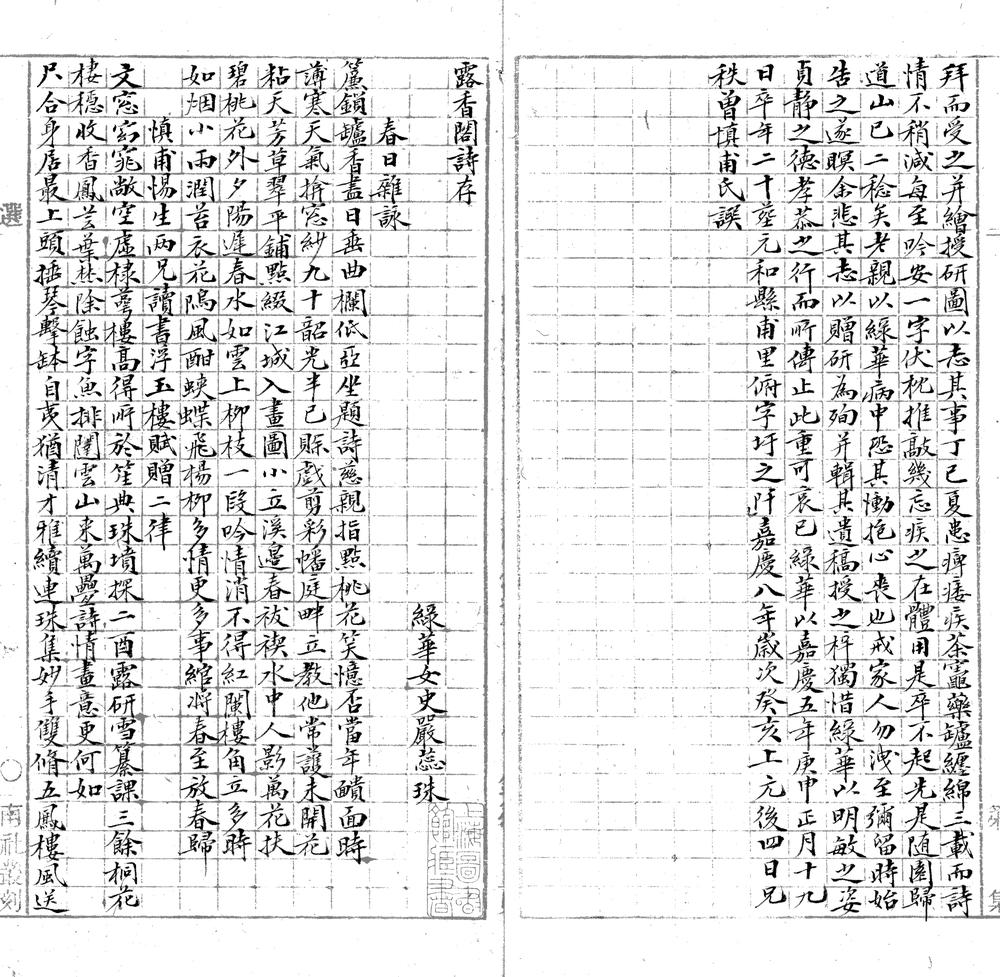 拜而受之并繪授研圖以志其事丁巳夏患痺痿疾茶竈藥罏纏綿三載而詩
情不稍減每至吟安一字伏枕推敲幾忘疾之在體用是卒不起先是随園歸
道山已二稔矣老親以綠華病中恐其慟抱心喪也戒家人勿洩至彌留時始
告之遂瞑余悲其志以贈研為殉并輯其遺稿授之梓獨惜綠華以明敏之姿
貞静之德孝恭之行而所傳止此重可哀已綠華以嘉慶五年庚申正月十九
日卒年二十塟元和縣甫里俯字圩之阡嘉慶八年嵗次癸亥上元後四日兄
秩曽慎甫氏譔
露香閣詩存
綠華女史嚴蕊珠
春日雜詠
簾鎖罏香盡日垂曲欄低亞坐題詩慈親指點桃花笑憶否當年靧面時
薄寒天氣揜窓紗九十韶光半已賒戲剪彩幡庭畔立教他常護未開花
粘天芳草翠平鋪點綴江城入畫圖小立溪邉春祓禊水中人影萬花扶
碧桃花外夕陽遲春水如雲上柳枝一段吟情消不得紅闌樓角立多時
如烟小雨潤苔衣花隖風酣蛺蝶飛楊柳多情更多事綰將春至放春歸
慎甫惕生兩兄讀書浮玉樓賦贈二律
文窓窈窕敞空虛棣萼樓高得所於笙典珠墳探二酉露研雪纂課三餘桐花
棲穩收香鳳芸葉𤑔除蝕字魚排闥雲山来萬疊詩情畫意更何如
尺合身居最上頭揷琴擊缽自夷猶清才雅續連珠集妙手雙脩五鳳樓風送
選
南社叢刻
集